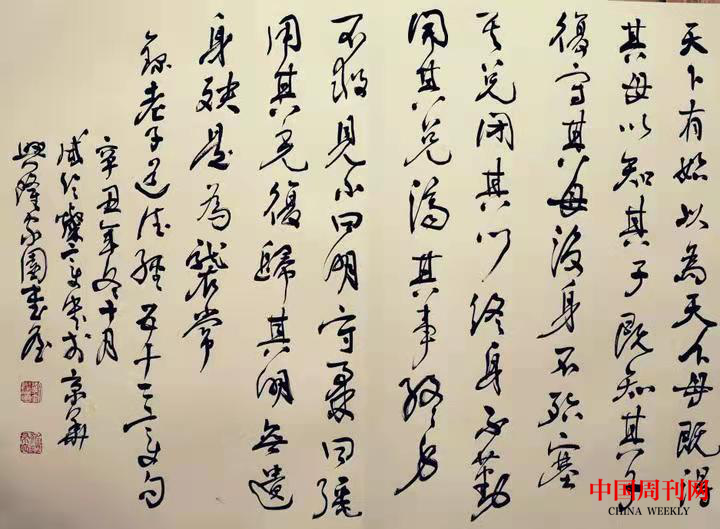 天下有始以為天下母既得
其母以知其子既知其子
復守其母没身不殆塞
其兑閉其门终身不勤
開其兑濟其事终身
不救見小曰明守柔曰强
用其光復歸其明無遺
身殃是為襲常
錄老子道德經五十二章句
辛丑年冬十月
書於京華
興隆家園書屋
中国周刊网
CHINA WEEKLY